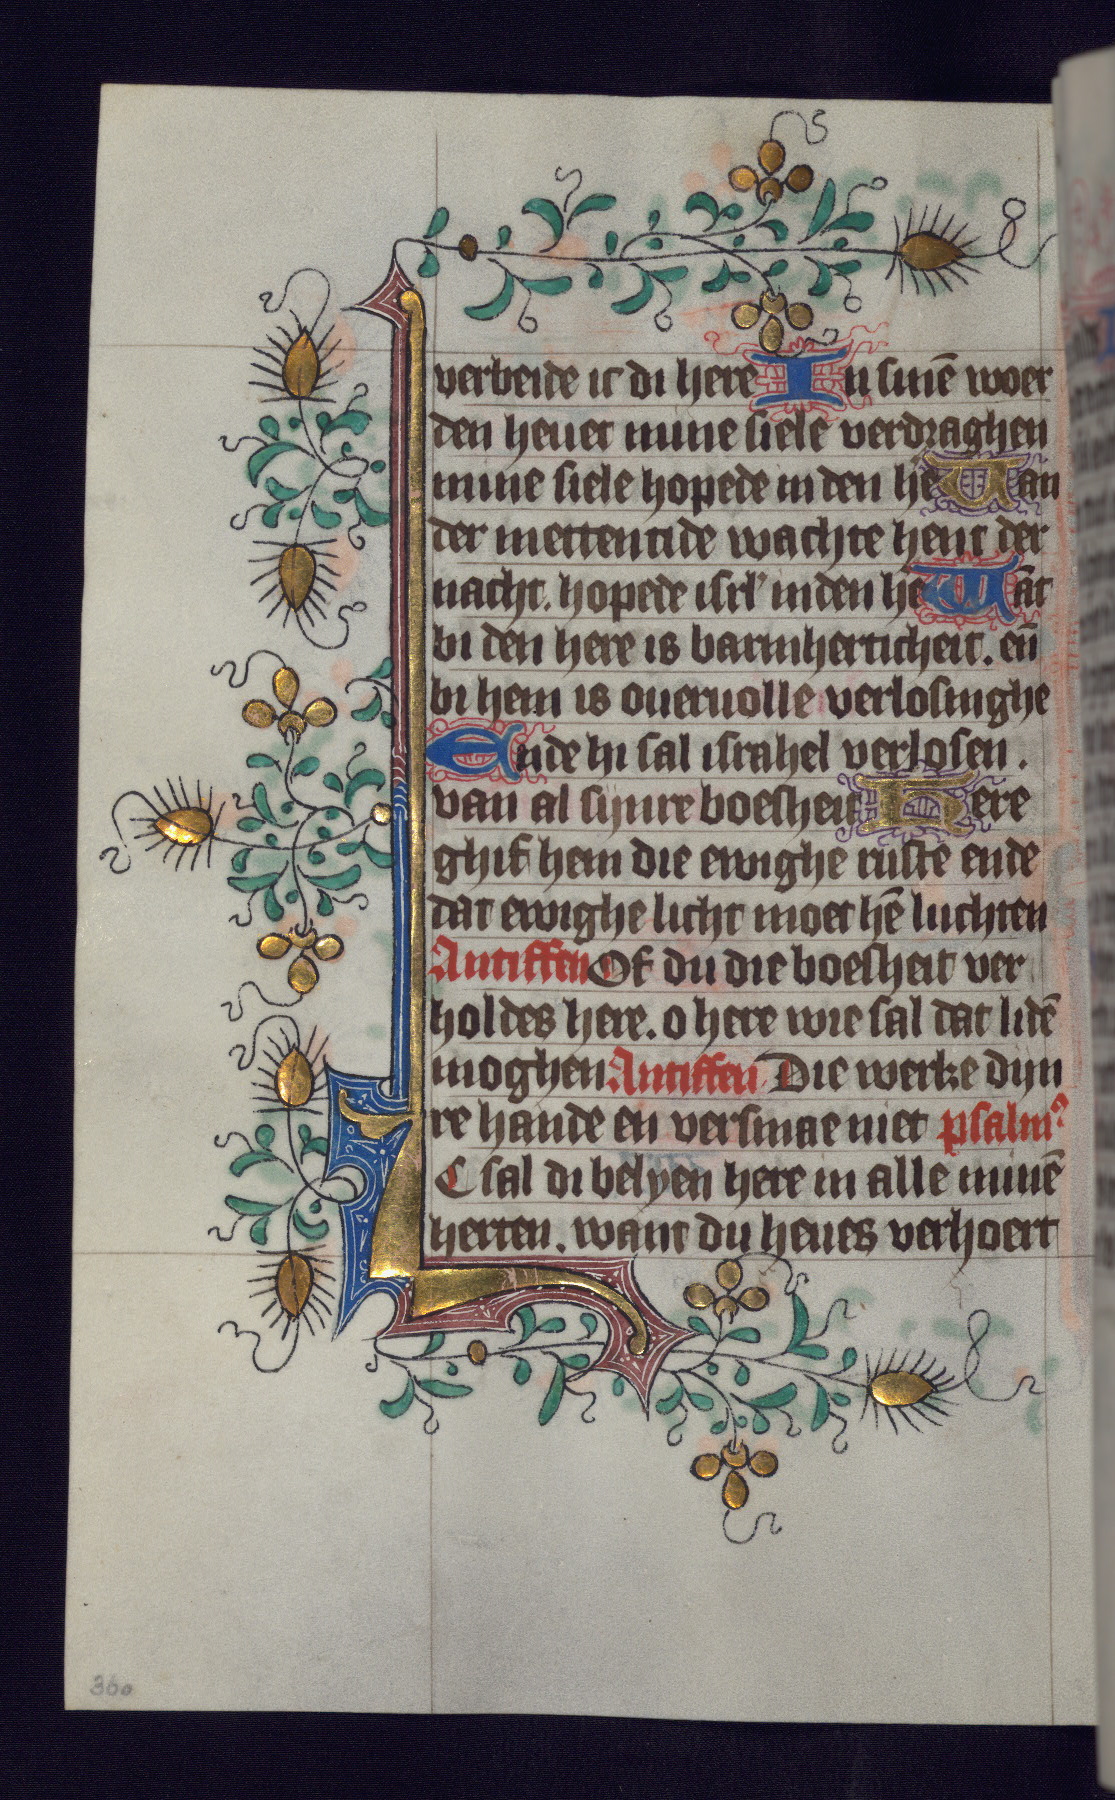 verbeide ic di here In sinē woer
den heuet mine siele verdraghen
mine siele hopede in den hē Uan
der mettentide wachte hent der
nacht. hopede isrl' in den hē Wāt
bi den here is barmherticheit. en̄
bi hem is oueruolle verlosinghe
Ende hi sal israhel verlosen.
van al synre boesheit Here
ghif hem die ewighe ruste ende
dat ewighe licht moet hē luchten
Antiffen Of du die boesheit ver
holdes here. o here wie sal dat lidē
moghen Antiffen Die werke dyn
re hande en versmae niet psalmꝰ
IC sal di belyen here in alle minē
herten. want du heues verhoert
360